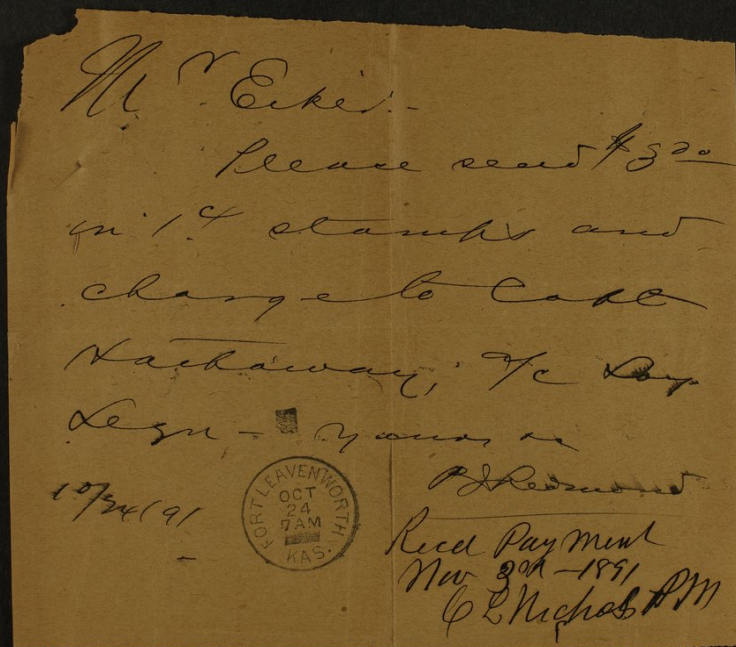 Mr Ecker -
Please send $3.00
in 1¢ stamps and
charge to Capt
Hathaway, a/c Loy
Legn - yours &c
P J Redmond
10/24/91
FORT LEAVENWORTH
OCT
24
7AM
KAS.
Recd Payment
Nov 3rd - 1891
C L Nichols PM